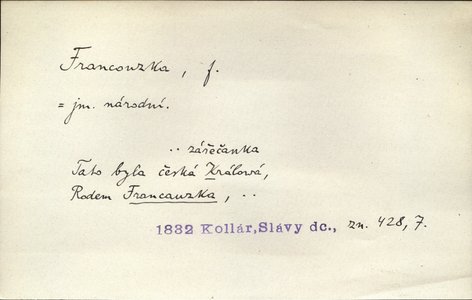 Francouzka, f.
= jm. národní.
.. zářečanka
Tato byla česká Králová,
Rodem Francauzka, ..
1832 Kollár,Slávy dc., zn. 428, 7.